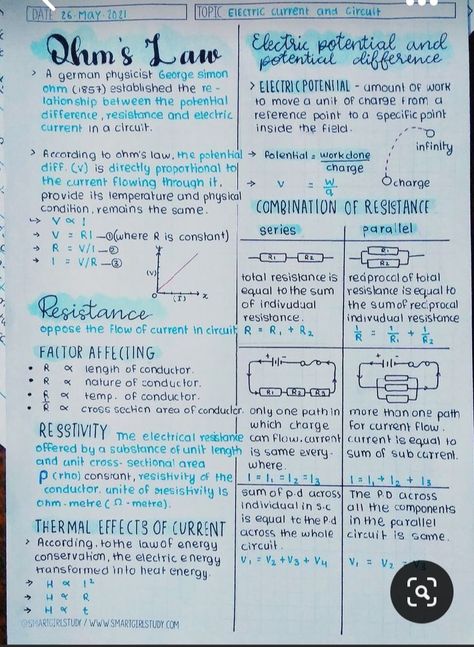 DATE 26·MAY·2021
TOPIC Electric current and Circuit
Ohm's Law
> A german physicist George simon
ohm (1857) established the re-
lationship between the potential
difference, resistance and electric
current in a circuit.
> According to ohm's law, the potential
diff. (V) is directly proportional to
the current flowing through it,
provide its temperature and physical
condition, remains the same.
↳ V ∝ I
→ V = RI —① (where R is constant)
→ R = V/I —②
→ I = V/R —③
y
(V)
(I)
x
Resistance
oppose the flow of current in circuit
FACTOR AFFECTING
• R ∝ length of conductor.
• R ∝ nature of conductor.
∝ temp. of conductor.
∝ cross section area of conductor.
RESSTIVITY The electrical resistance
offered by a substance of unit length
and unit cross-sectional area
ρ (rho) constant, resistivity of the
conductor. unite of resistivity is
ohm-metre (Ω-metre).
THERMAL EFFECTS OF CURRENT
> According to the law of energy
conservation, the electric energy
transformed into heat energy.
→ H ∝ I²
→ H ∝ R
→ H ∝ t
@SMARTGIRLSTUDY / WWW.SMARTGIRLSTUDY.COM
Electric potential and
potential difference
> ELECTRIC POTENTIAL - amount of work
to move a unit of charge from a
reference point to a specific point
inside the field.
→ Potential = workdone
charge
→ V = W
q
infinity
charge
COMBINATION OF RESISTANCE
series
R1 R2
total resistance is
equal to the sum
of indivudual
resistance.
R = R1 + R2
R1 R2 R3
only one path in
which charge
can flow. current
is same every-
where.
I = I1 = I2 = I3
sum of p.d across
individual in s.c
is equal to the P.d
across the whole
circuit.
V1 = V2 + V3 + V4
parallel
R1
R2
reciprocal of total
resistance is equal to
the sum of reciprocal
individual resistance
1/R = 1/R1 + 1/R2
more than one path
for current flow.
current is equal to
sum of sub current.
I = I1 + I2 + I3
The PD across
all the components
in the parallel
circuit is same.
V1 = V2 = V3